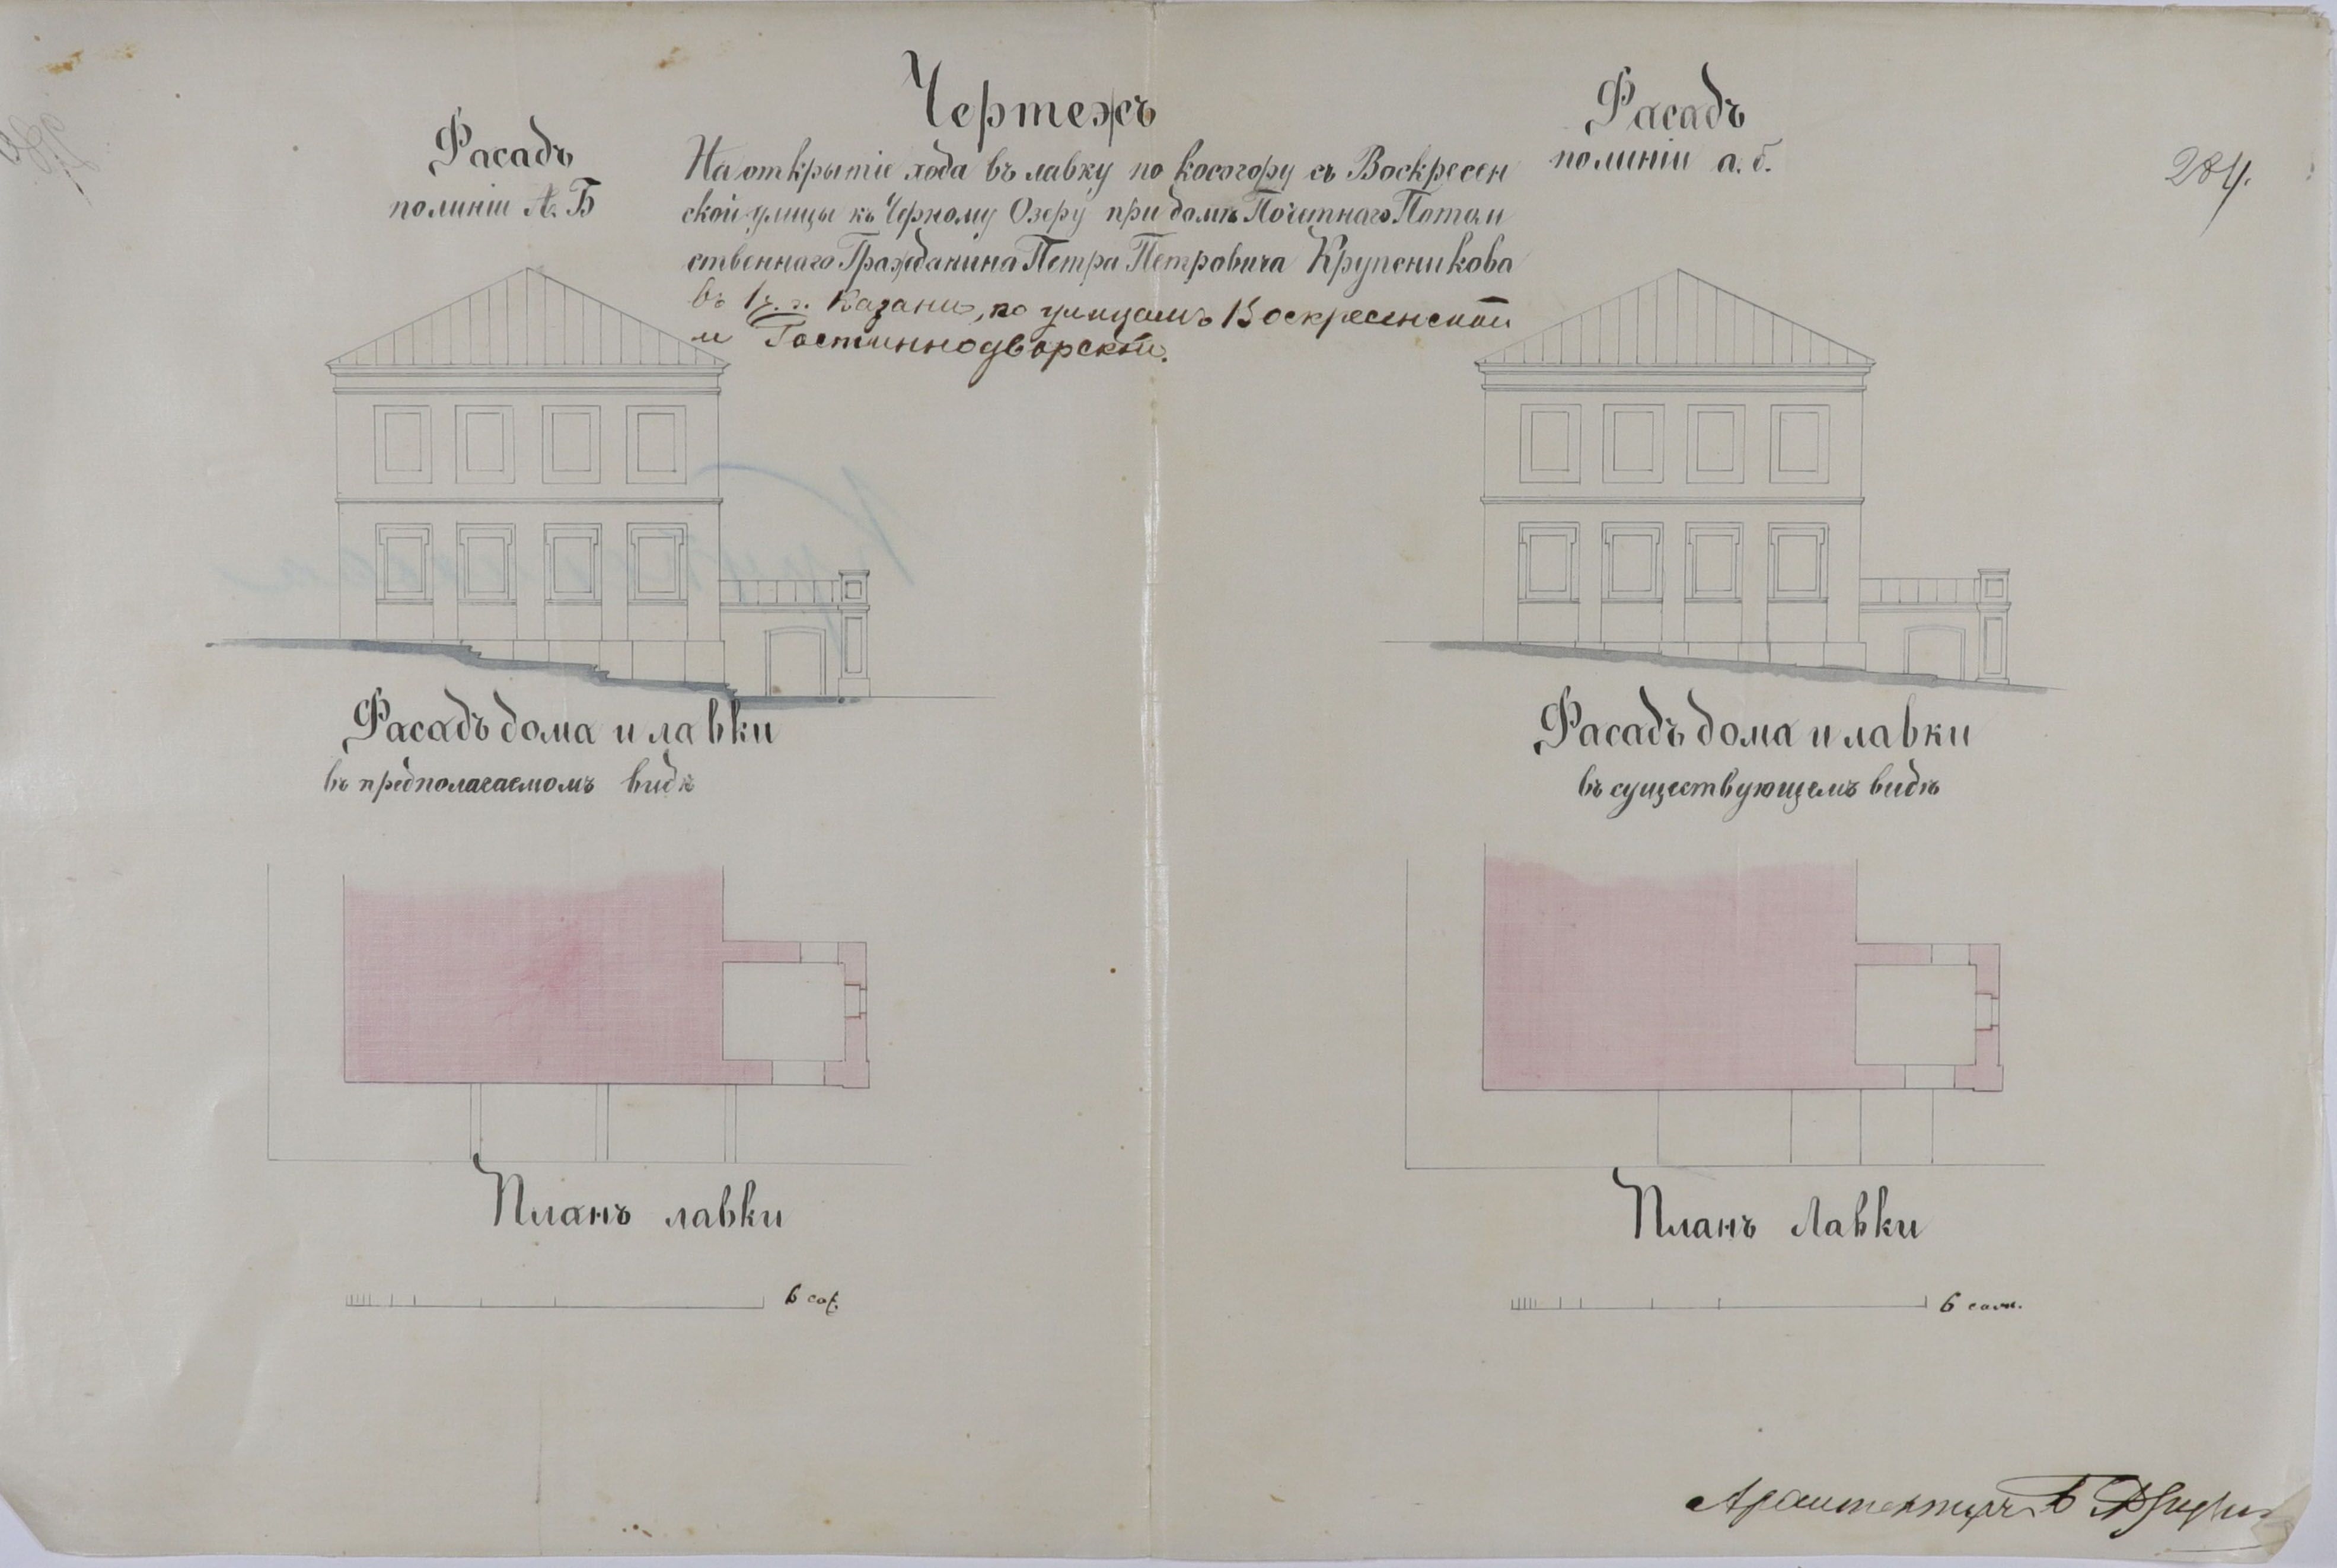 Чертежъ
На открытіе хода въ лавку по косогору съ Воскресен
ской улицы къ Черному Озеру при домѣ Почетнаго Потом
ственнаго Гражданина Петра Петровича Крупеникова
въ 1 ч. г. Казани, по улицамъ Воскресенской
и Гостиннодворской.
Фасадъ
по линіи А. Б
Фасадъ
по линіи а. б.
284.
Фасадъ дома и лавки
въ предполагаемомъ видѣ
Фасадъ дома и лавки
въ существующемъ видѣ
Планъ лавки
Планъ Лавки
6 саж.
6 саж.
Архитекторъ